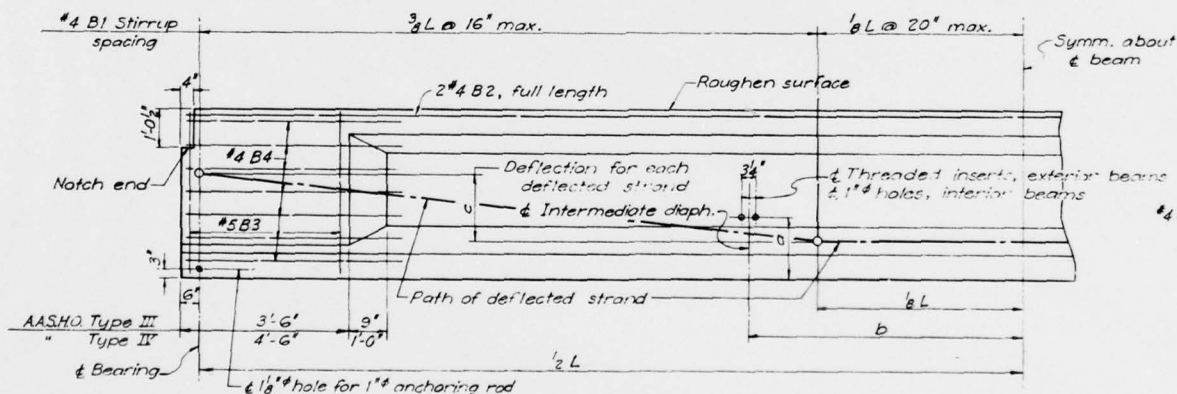 #4 B1 Stirrup
spacing
3/8 L @ 16" max.
1/8 L @ 20" max.
Symm. about
℄ beam
4"
1'-0 1/2"
2 #4 B2, full length
Roughen surface
#4 B4
Notch end
Deflection for each
deflected strand
c
3 1/4"
℄ Threaded inserts, exterior beams
℄ 1"ø holes, interior beams
℄ Intermediate diaph.
#4
#5 B3
a
3"
6"
Path of deflected strand
1/8 L
A.A.S.H.O. Type III
" Type IV
3'-6"
4'-6"
9"
1'-0"
b
℄ Bearing
1/2 L
℄ 1 1/8"ø hole for 1"ø anchoring rod